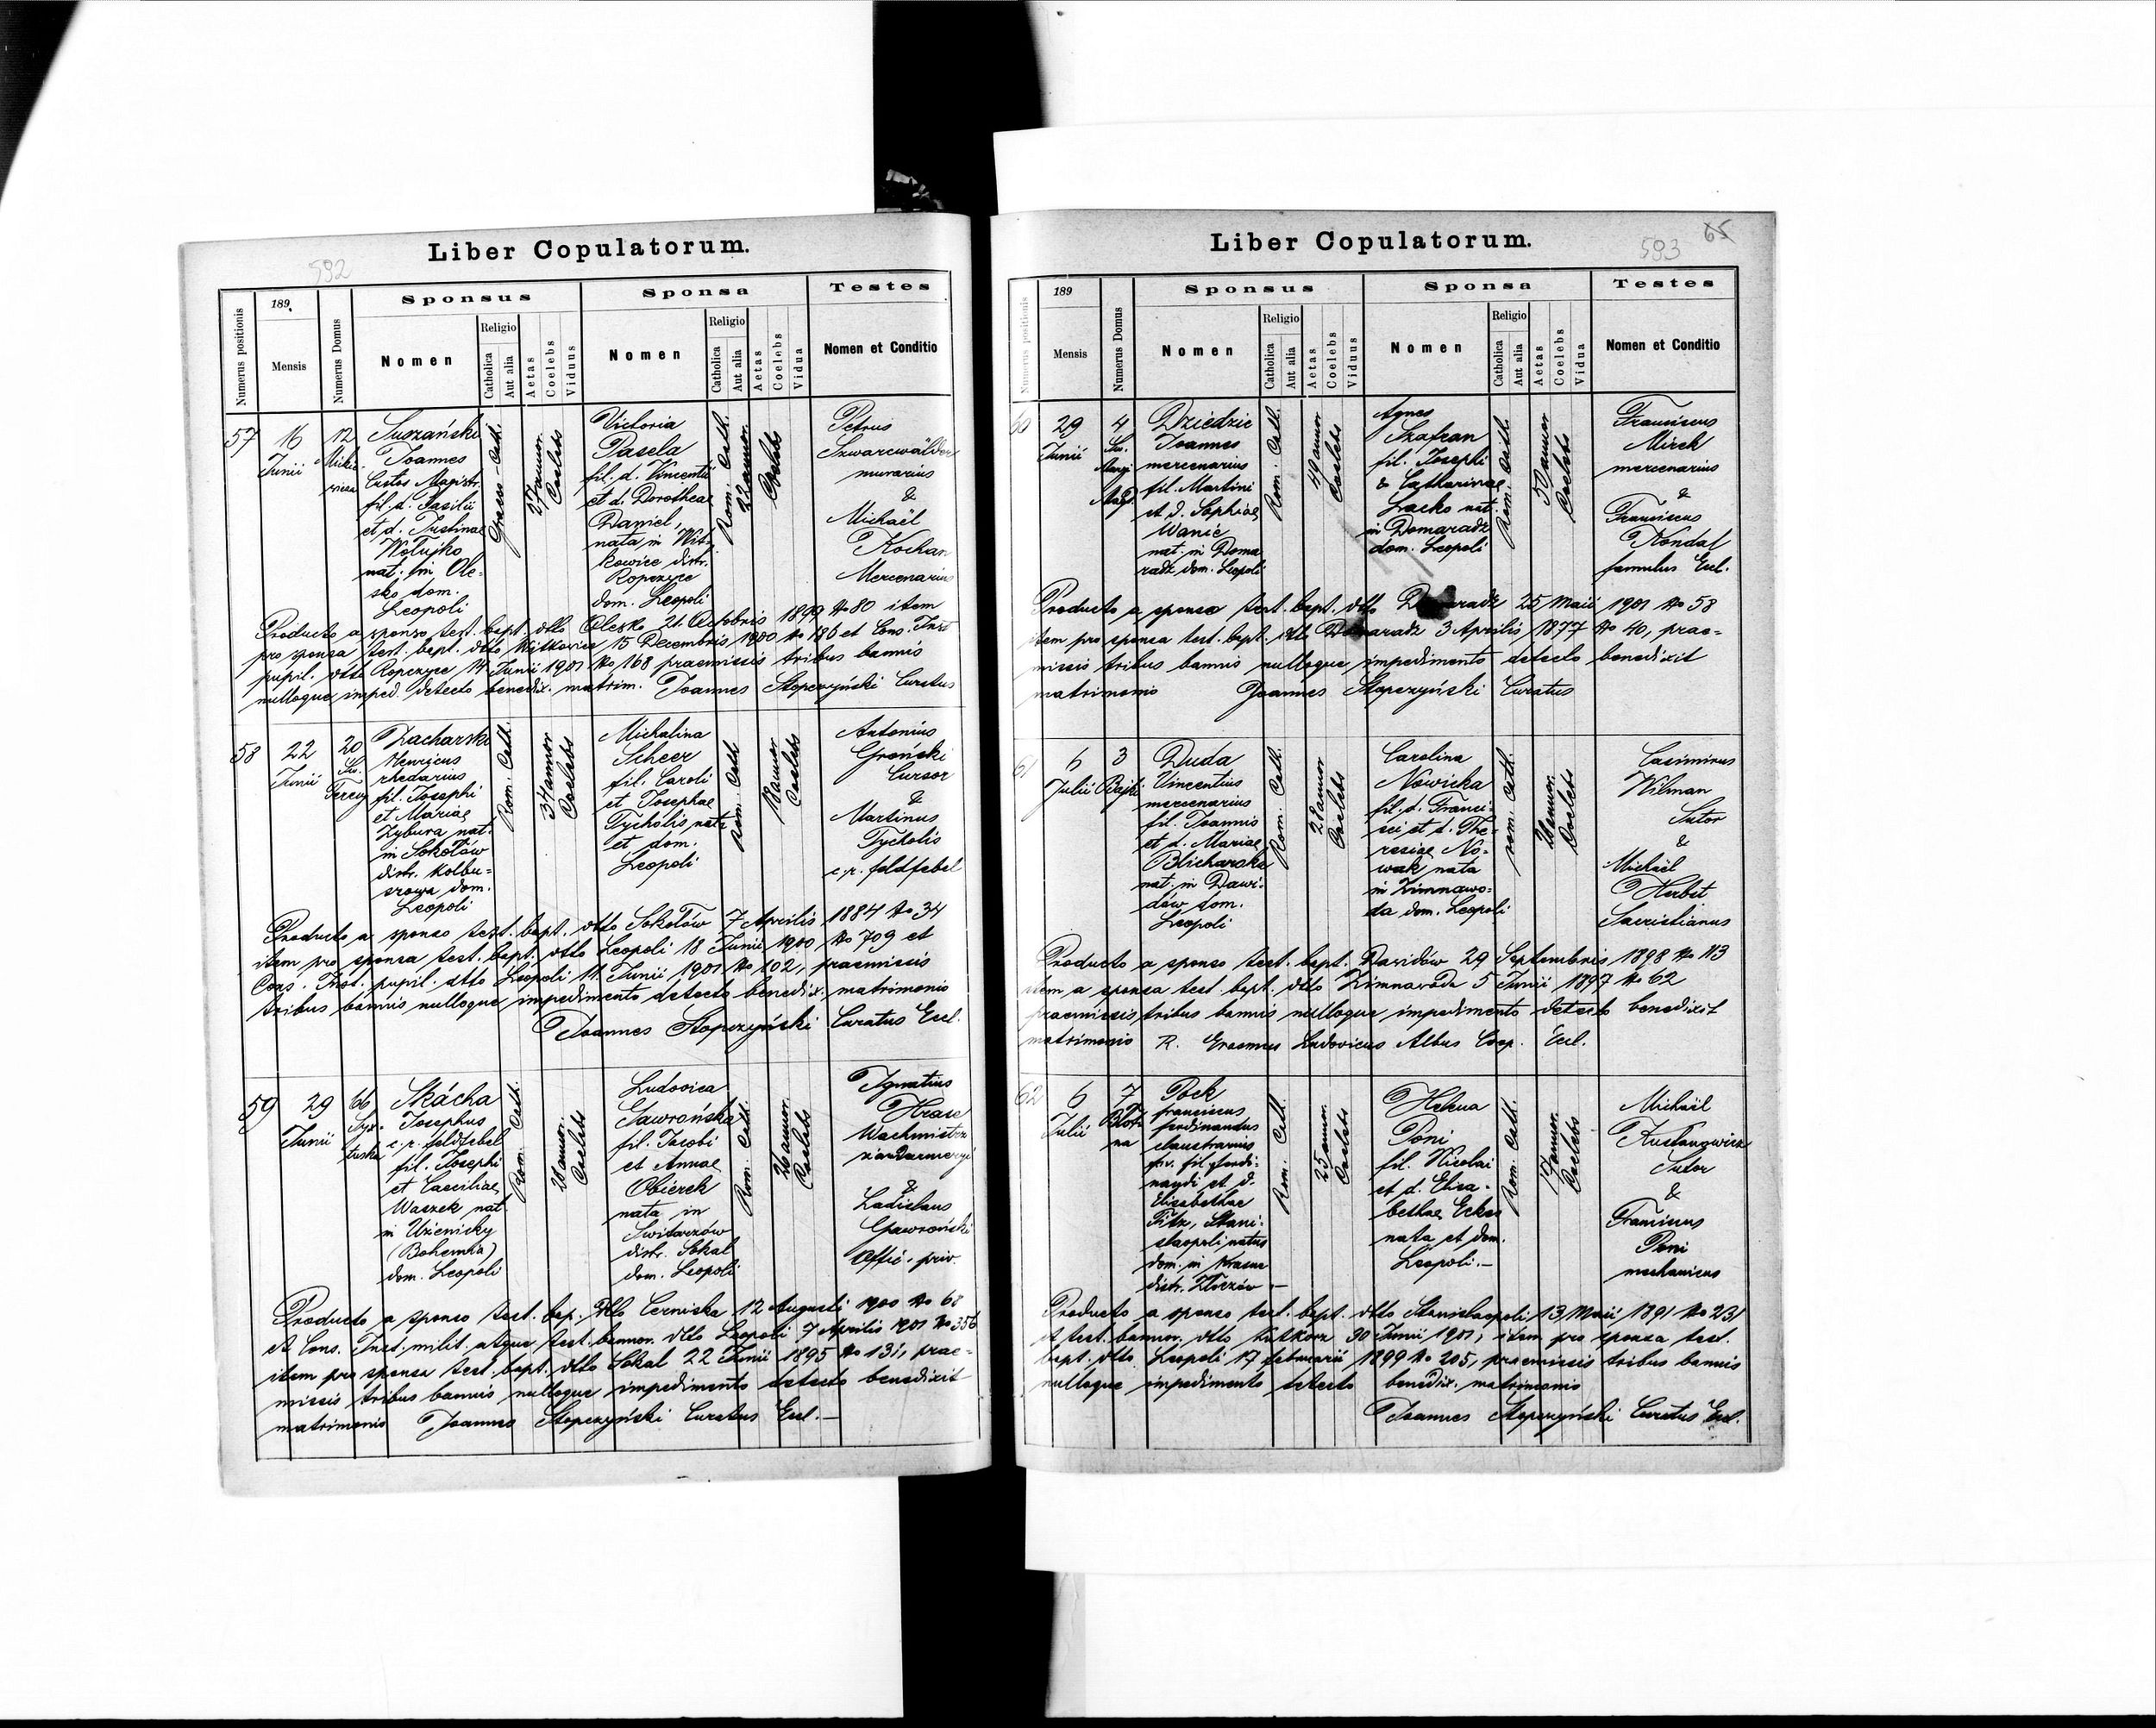 592
Liber Copulatorum.
Numerus positionis
189
Mensis
Numerus Domus
Sponsus
Nomen
Religio
Catholica
Aut alia
Aetas
Coelebs
Viduus
Sponsa
Nomen
Religio
Catholica
Aut alia
Aetas
Coelebs
Vidua
Testes
Nomen et Conditio
57
16
Junii
12
Suszański
Joannes
Custos Magistr.
fil. d. Basilii
et d. Justinae
Wołujko
nat. in Ole-
sko dom.
Leopoli
Graeco Cath.
27 annor.
Coelebs
Victoria
Pasela
fil. d. Vincentii
et d. Dorotheae
Daniel,
nata in Wit-
kowice distr.
Ropczyce
dom. Leopoli
Rom. Cath.
22 annor.
Coelebs
Petrus
Szwarcwälder
murarius
&
Michaël
Kochan
Mercenarius
Producto a sponso test. bapt. dtto Olesko 21 Octobris 1899 No 80 item
pro sponsa test. bapt. dtto Witkowice 15 Decembris 1900 No 186 et Cons. Inst
pupil. dtto Ropczyce 14 Junii 1901 No 168 praemissis tribus bannis
nulloque imped. detecto benedix. matrim. Joannes Stopczyński Curatus
58
22
Junii
20
Św.
Teresy
Zacharski
Henricus
rhedarius
fil. Josephi
et Mariae
Zybura nat.
in Sokołów
distr. Kolbu-
szowa dom.
Leopoli
Rom. Cath.
34 annor
Coelebs
Michalina
Scheer
fil. Caroli
et Josephae
Tycholis nata
et dom.
Leopoli
Rom. Cath
18 annor
Coelebs
Antonius
Groński
Cursor
&
Martinus
Tycholis
c. r. feldfebel
Producto a sponso test. bapt. dtto Sokołów 7 Aprilis 1884 No 34
item pro sponsa test. bapt. dtto Leopoli 18 Junii 1900 No 709 et
Cons. Inst. pupil. dtto Leopoli 11 Junii 1901 No 102, praemissis
tribus bannis nulloque impedimento detecto benedix. matrimonio
Joannes Stopczyński Curatus Eccl.
59
29
Junii
66
Syx-
tuska
Skácha
Josephus
c. r. feldfebel
fil. Josephi
et Caeciliae
Waszek nat
in Uženicky
(Bohemia)
dom. Leopoli
Rom. Cath.
28 annor.
Coelebs
Ludovica
Gawrońska
fil. Jacobi
et Annae
Obierek
nata in
Switarzów
distr. Sokal
dom. Leopoli
Rom. Cath.
26 annor.
Coelebs
Ignatius
Wachmistrz
&
Ladislaus
Gawroński
Offic. priv.
Producto a sponso test. bap. dtto 12 Augusti 1900 No 68
et Cons. Inst. milit. atque test. bannor. dtto Leopoli 7 Aprilis 1901 No 356
item pro sponsa test. bapt. dtto Sokal 22 Junii 1895 No 131, prae-
missis tribus bannis nulloque impedimento detecto benedixit
matrimonio Joannes Stopczyński Curatus Eccl.—
593
65
Liber Copulatorum.
Numerus positionis
189
Mensis
Numerus Domus
Sponsus
Nomen
Religio
Catholica
Aut alia
Aetas
Coelebs
Viduus
Sponsa
Nomen
Religio
Catholica
Aut alia
Aetas
Coelebs
Vidua
Testes
Nomen et Conditio
60
29
Junii
4
Dziedzic
Joannes
mercenarius
fil. Martini
et d. Sophiae
Wanic
nat. in Doma
radz dom. Leopoli
Rom. Cath.
49 annor
Coelebs
Agnes
Szafran
fil. Josephi
& Catharinae
Lacko nat.
in Domaradz
dom. Leopoli
Rom. Cath.
50 annor
Coelebs
Franciscus
Mirek
mercenarius
&
Franciscus
Kondal
famulus Eccl.
Producto a sponso test. bapt. dtto Domaradz 25 Maii 1901 No 58
item pro sponsa test. bapt. dtto Domaradz 3 Aprilis 1877 No 40, prae=
missis tribus bannis nulloque impedimento detecto benedixit
matrimonio Joannes Stopczyński Curatus
61
6
Julii
3
Bajki
Duda
Vincentius
mercenarius
fil. Joannis
et d. Mariae
Blicharska
nat. in Dawi-
dów dom.
Leopoli
Rom. Cath.
28 annor
Coelebs
Carolina
Nowicka
fil. d. Franci-
sci et d. The-
resiae No-
wak nata
in Zimnawo-
da dom. Leopoli
rom. cath.
28 annor.
Coelebs
Casimirus
Wilman
Sutor
&
Michaël
Herbst
Sacristianus
Producto a sponso test. bapt. Dawidów 29 Septembris 1898 No 113
item a sponsa test. bapt. dtto Zimnawoda 5 Junii 1897 No 62
praemissis tribus bannis nulloque impedimento detecto benedixit
matrimonio R. Erasmus Ludovicus Albus Coop. Eccl.
62
6
Julii
7
Błot-
na
Pock
franciscus
ferdinandus
fil. ferdi-
nandi et d.
Elisabethae
Titz, Stani-
slaopoli natus
dom. in Krasne
distr. Złoczów —
Rom. Cath.
25 annor.
Coelebs
Helena
Poni
fil. Nicolai
et d. Elisa-
bethae
nata et dom.
Leopoli.—
Rom. Cath.
17 annor.
Coelebs
Michaël
Sutor
&
Franciscus
Poni
mechanicus
Producto a sponso test. bapt. dtto Stanislaopoli 13 Maii 1891 No 231
et test. bannor. dtto Kutkorz 30 Junii 1901, item pro sponsa test.
bapt. dtto Leopoli 17 februarii 1899 No 205, praemissis tribus bannis
nulloque impedimento detecto benedix. matrimonio
Joannes Stopczyński Curatus Eccl.